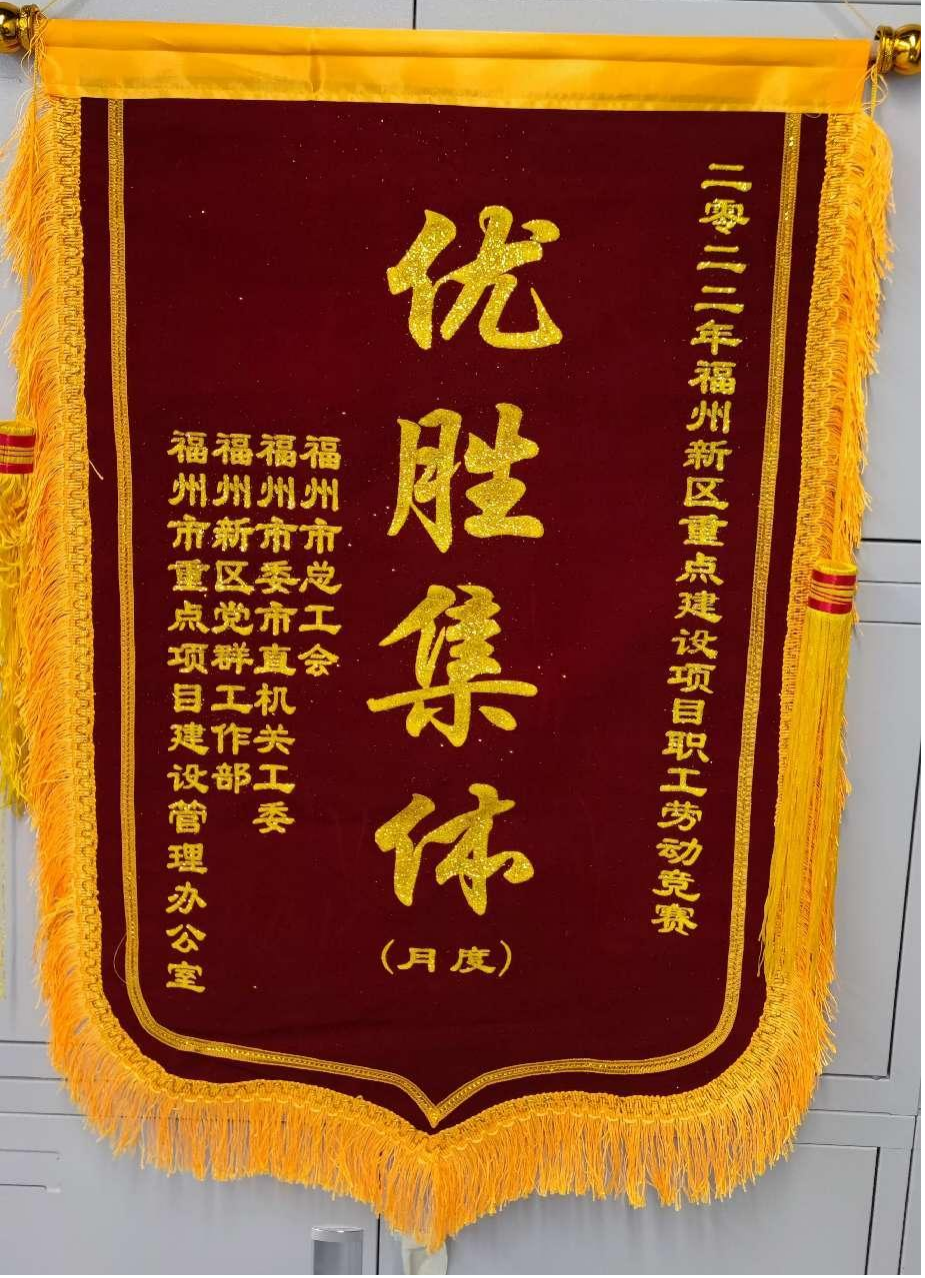 二零二二年福州新区重点建设项目职工劳动竞赛
优胜集体
（月度）
福州市总工会
福州市委市直机关工委
福州新区党群工作部
福州市重点项目建设管理办公室